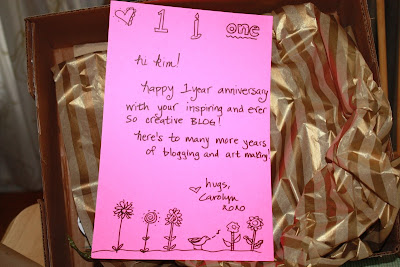 1 i one
hi kim!
happy 1-year anniversary
with your inspiring and ever
so creative BLOG!
here's to many more years
of blogging and art making!
hugs,
Carolyn
xoxo